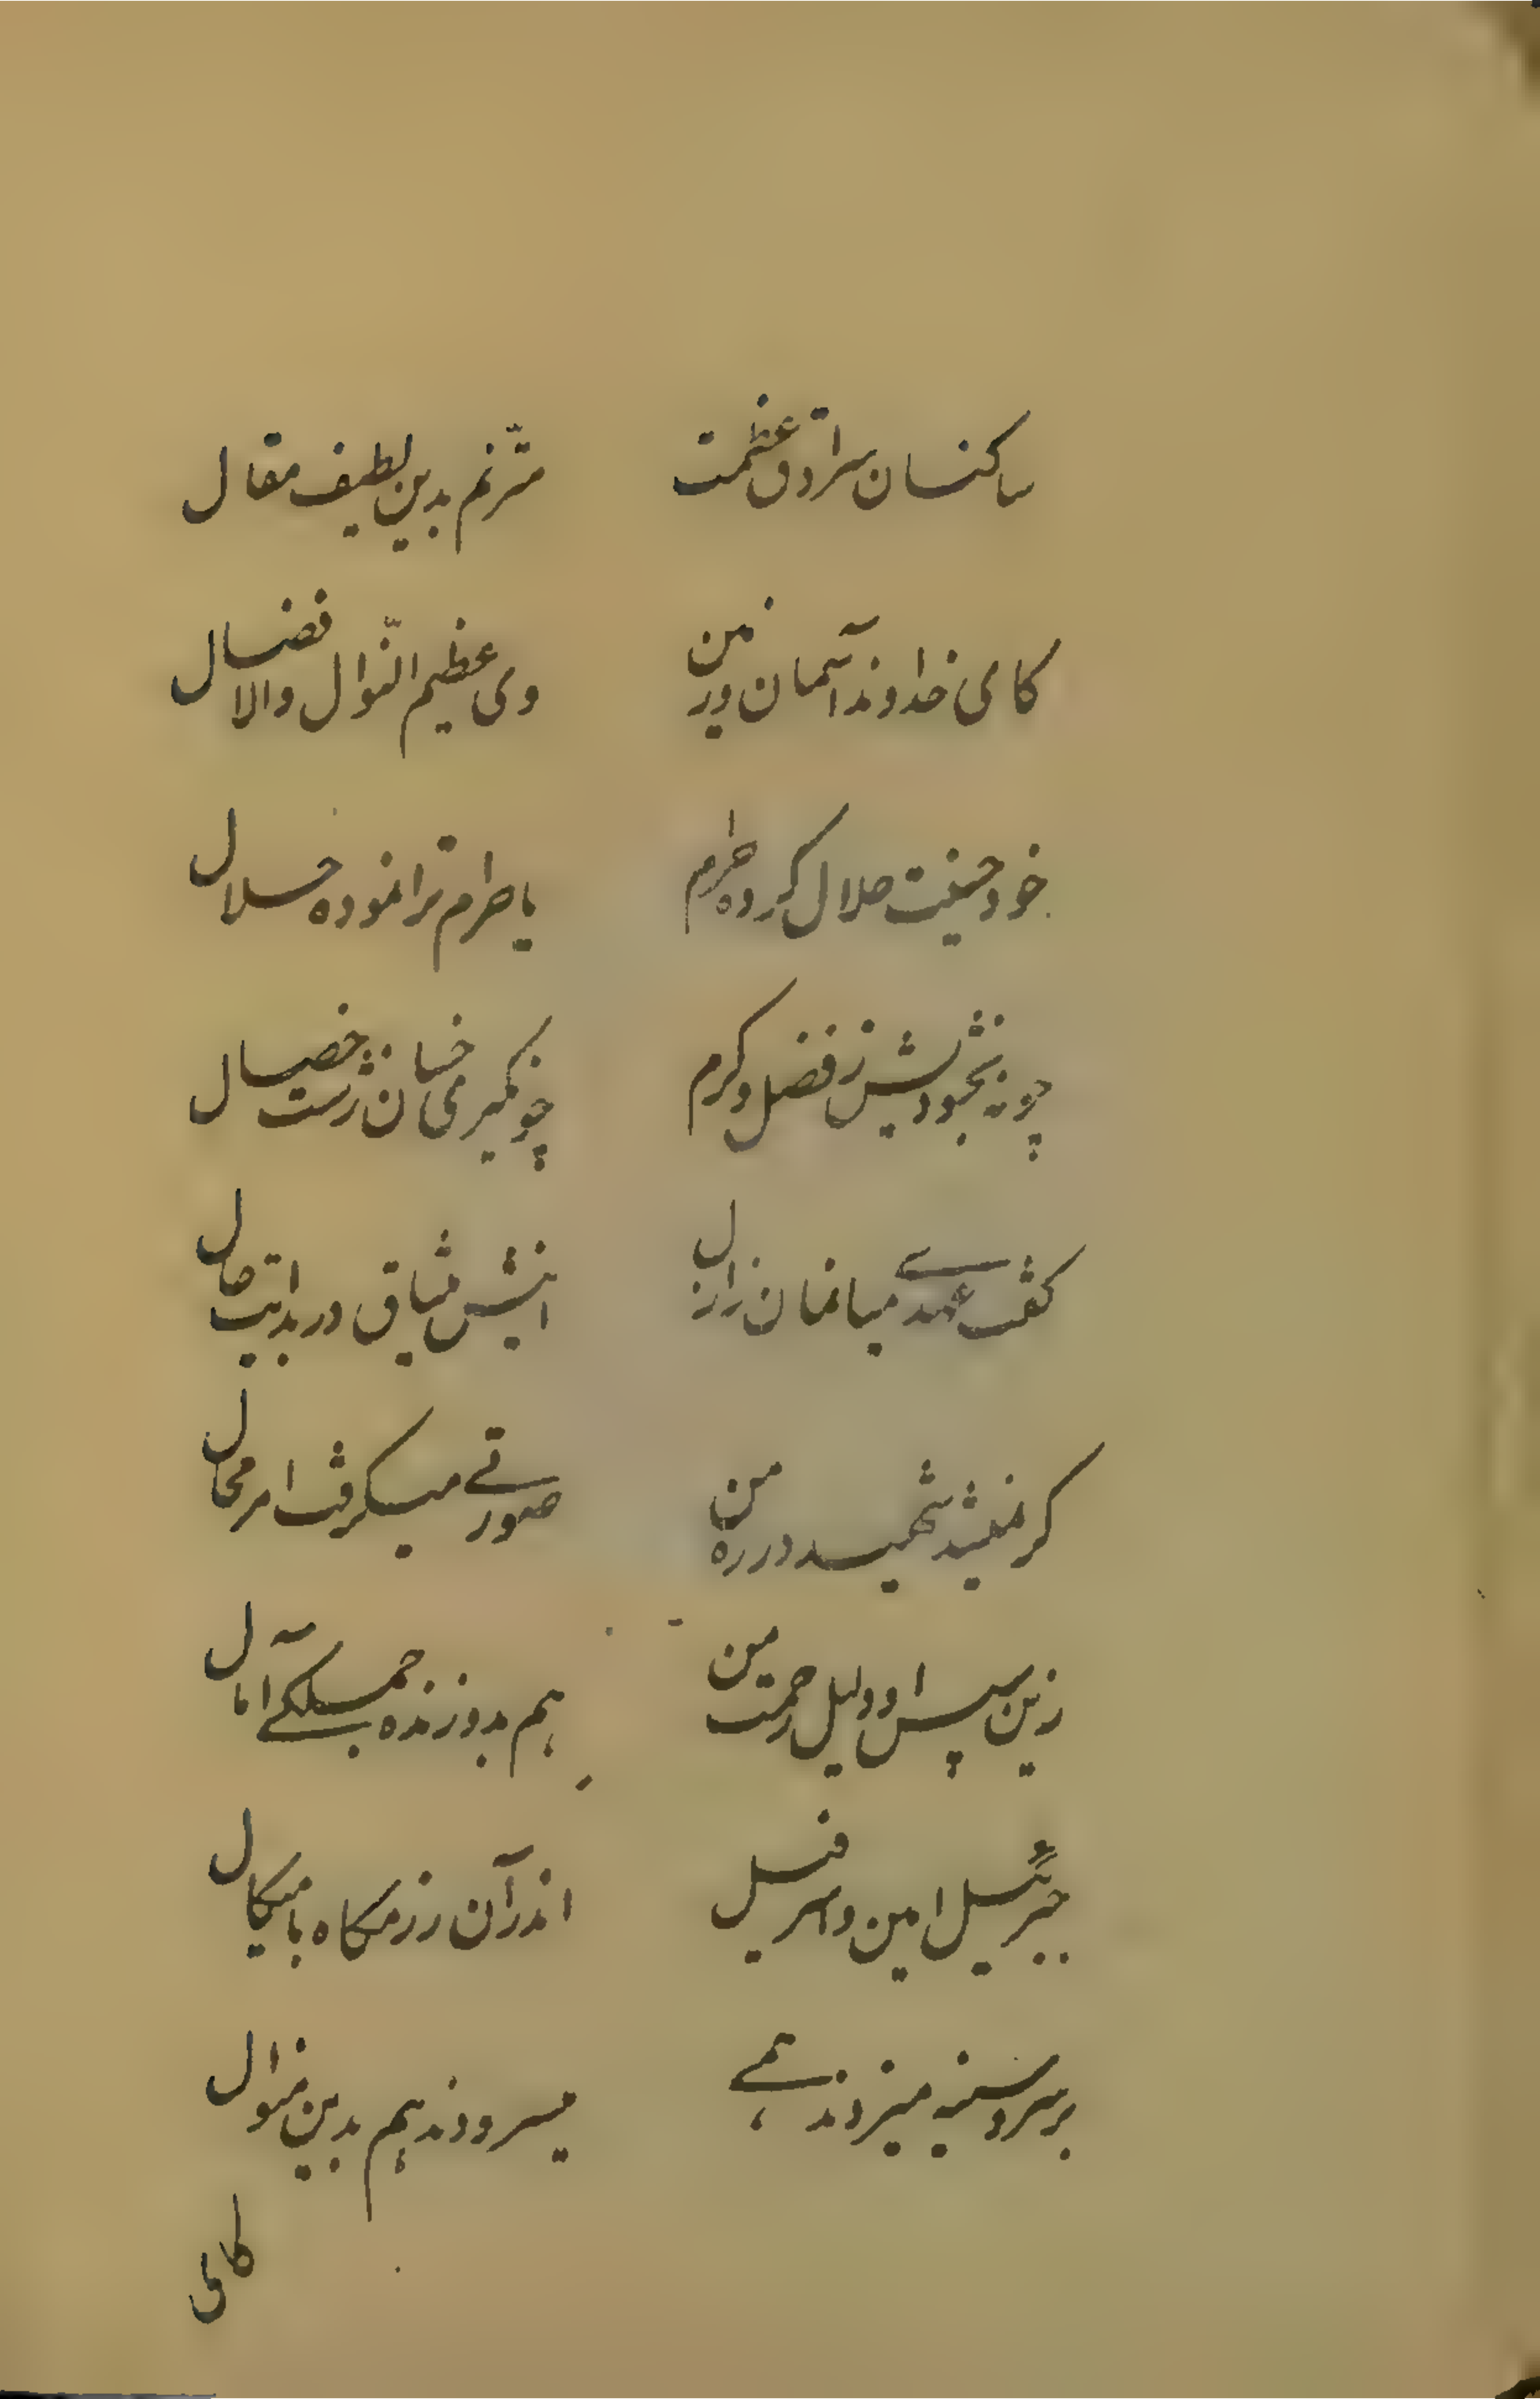 ساکنان سرادق عظمت مترنم بدین لطیف مقال
کای خداوند آسمان و زمین وی عظیم النّوال والافضال
خود حقیقت حلال کرده حرام یا حرام ترا نموده حلال
چو نبخشودیش ز فضل و کرم چو نگیری خسان زشت خصال
گفت عهدے میانمان ز ازل اینش میثاق در بدایت حال
کر نمیشد شهید در ره من صورتے میکرفت امر محال
زین سپس او دلیل رحمت من هم بدو زنده جملکے آمال
جبرئیل امین و اسرفیل اندر آن رزمکاه با میکال
بر سر و سینه میزدند همے میسرودند هم بدین منوال
کای